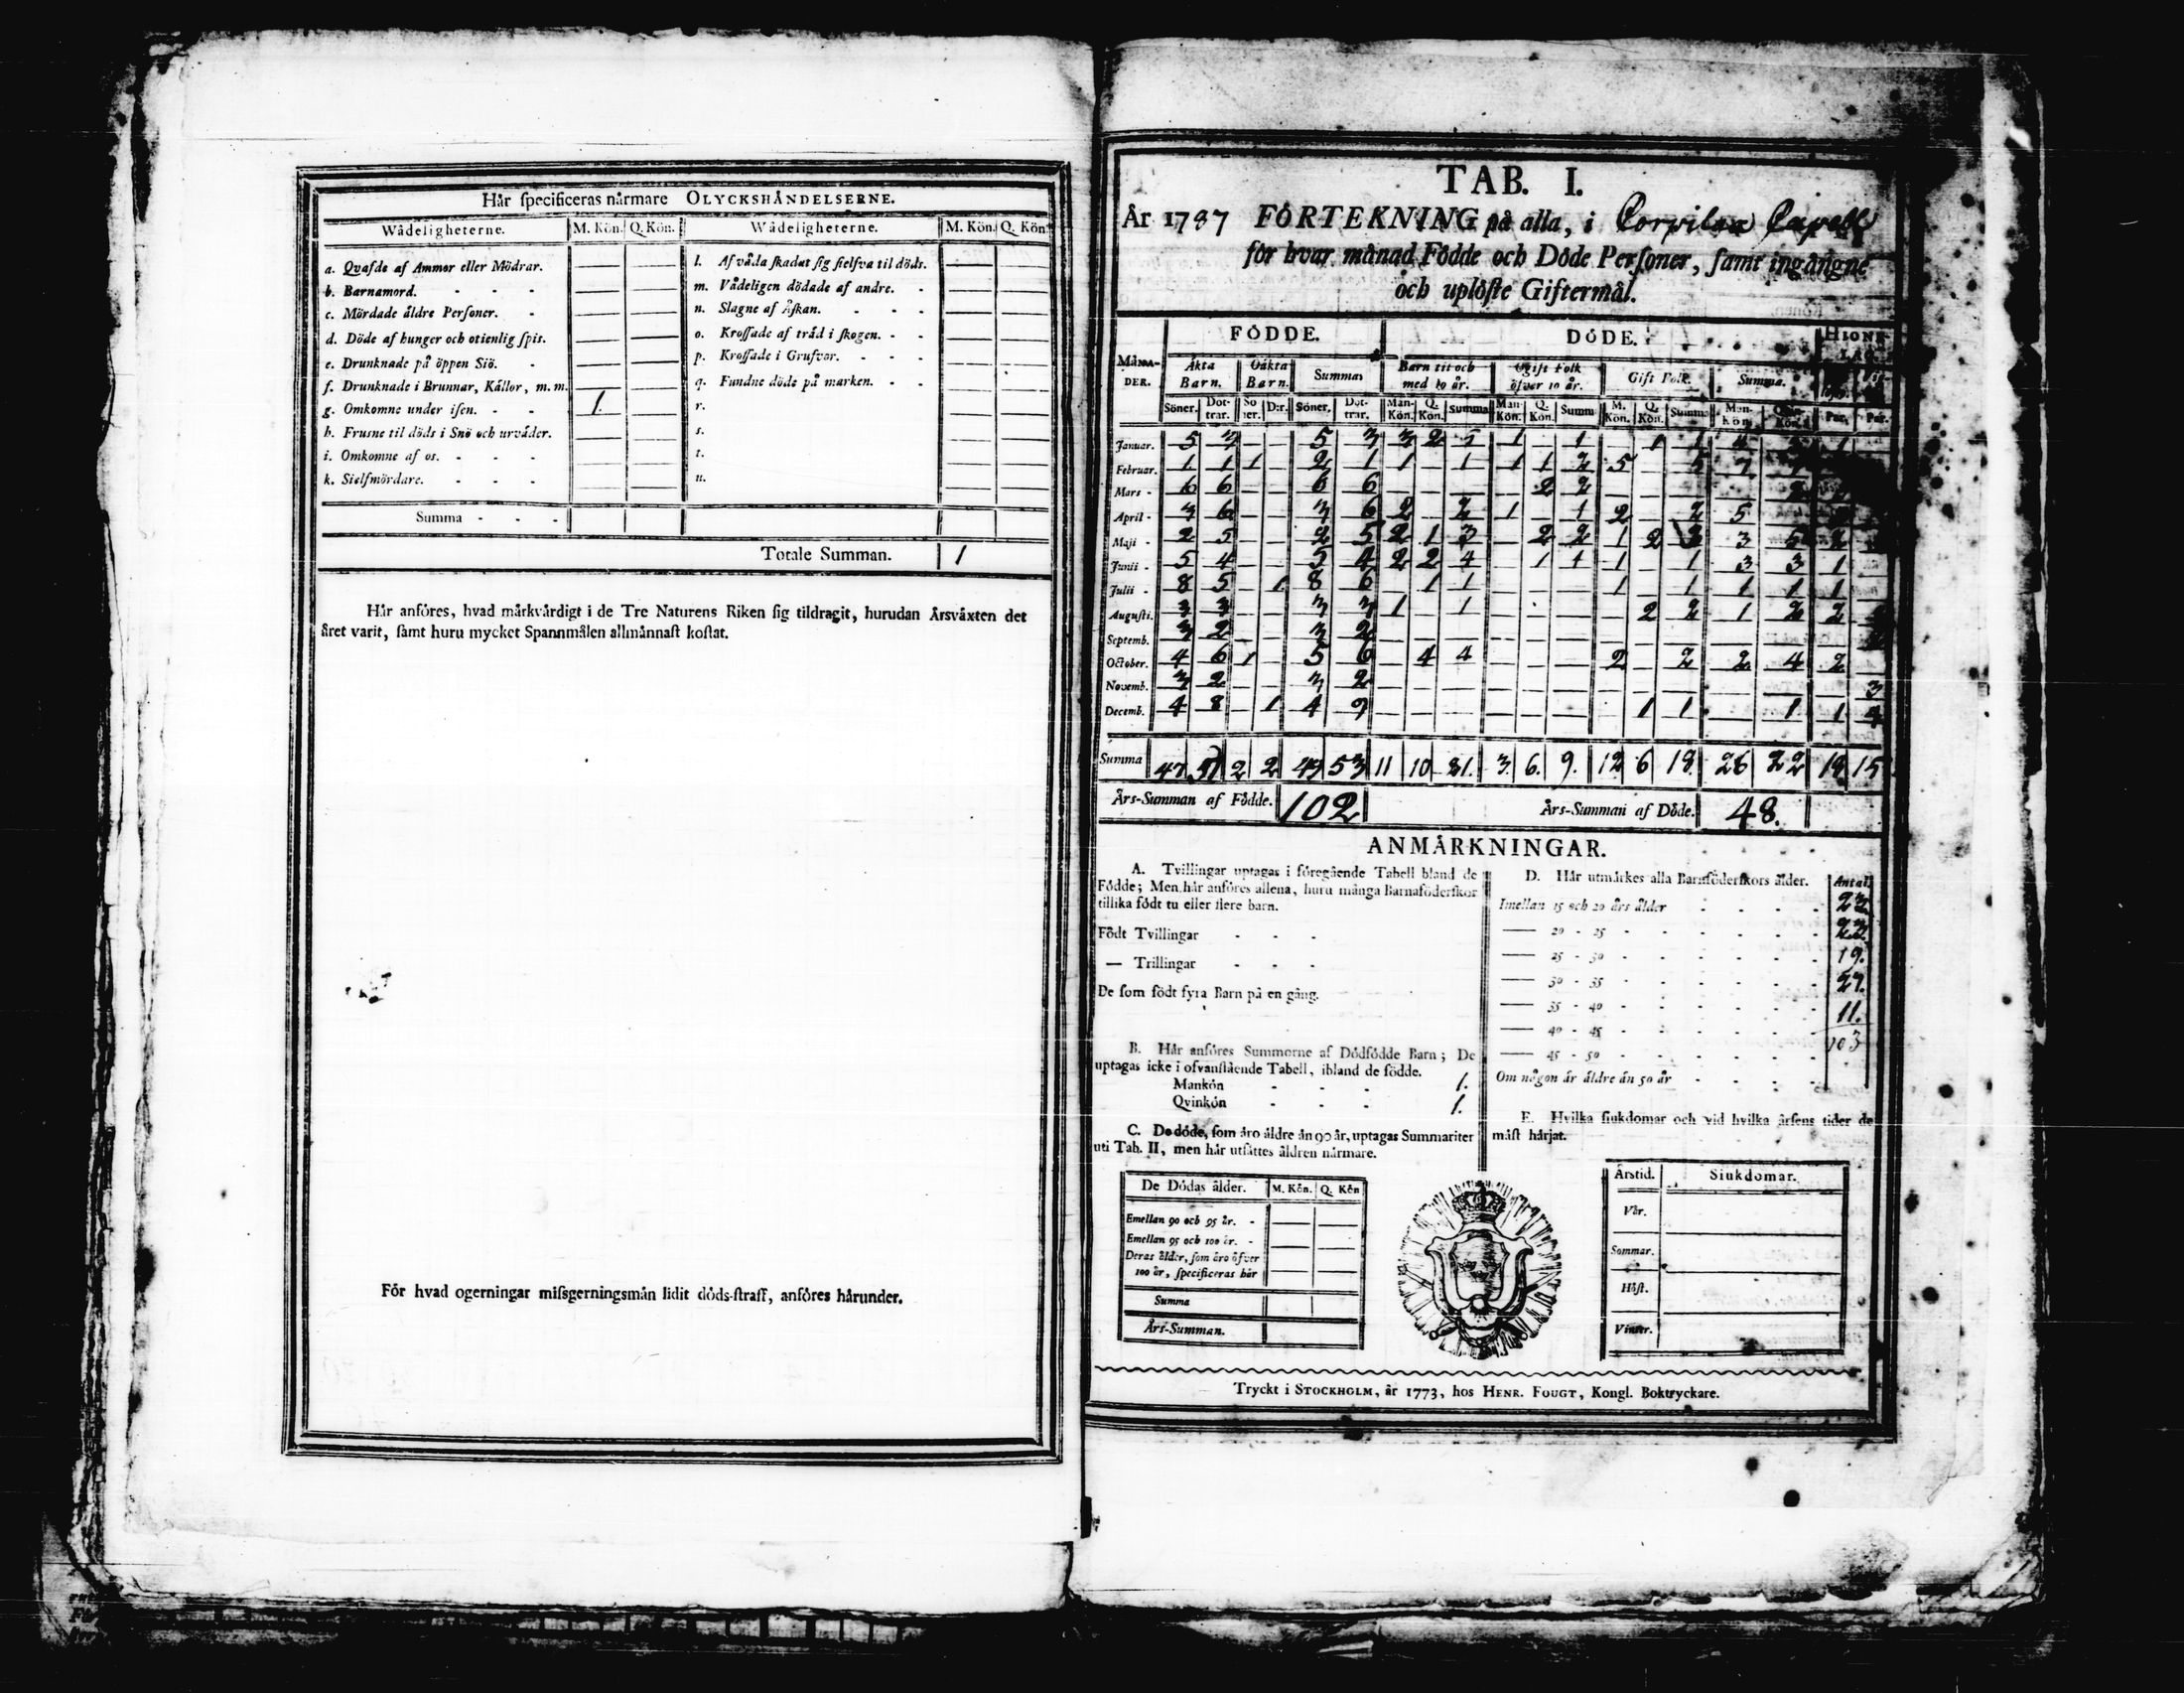 Hår specificeras nårmare OLYCKSHÅNDELSERNE.
Wådeligheterne. M. Kön. Q. Kön. Wådeligheterne. M. Kön. Q. Kön.
a. Qvafde af Ammor eller Mödrar.
b. Barnamord. - - -
c. Mördade åldre Personer. -
d. Döde af hunger och otienlig spis.
e. Drunknade på öppen Siö. -
f. Drunknade i Brunnar, Kållor, m. m.
g. Omkomne under isen. - - 1.
h. Frusne til döds i Snö och urvåder.
i. Omkomne af os. - - -
k. Sielfmördare. - - -
l. Af våda skadat sig sielfva til döds.
m. Vådeligen dödade af andre. -
n. Slagne af Åskan. - - -
o. Krossade af tråd i skogen. - -
p. Krossade i Grufvor. - - -
q. Fundne döde på marken. - -
r.
s.
t.
u.
Summa - - -
Totale Summan. 1
Hår anföres, hvad mårkvårdigt i de Tre Naturens Riken sig tildragit, hurudan Årsvåxten det
året varit, samt huru mycket Spannmålen allmånnast kostat.
För hvad ogerningar missgerningsmån lidit döds-straff, anföres hårunder.
TAB. I.
År 1787 FÖRTEKNING på alla, i Corpilax Capell
för hvar månad Födde och Döde Personer, samt ingångne
och uplöste Giftermål.
FÖDDE. DÖDE. HIONE-
LAG.
MÅNA-
DER. Åkta Barn. Oåkta Barn. Summa. Barn til och med 10 år. Ogift Folk öfver 10 år. Gift Folk. Summa.
Söner. Dot-trar. So ner. D:r. Söner. Dot-trar. Man-Kön. Q. Kön. Summa Man-Kön. Q. Kön. Summ M. Kön. Q. Kön. Summa Man-Kön Qvin-Kön. Par. Par.
Januar. 5 3 5 3 3 2 5 1 1 1 1 4 3 1
Februar. 1 1 1 2 1 1 1 1 1 2 5 5 7
Mars - 6 6 6 6 2 2 2
April - 3 6 3 6 2 2 1 1 2 2 5
Maji - 2 5 2 5 2 1 3 2 2 1 2 3 3 5 2
Junii - 5 4 5 4 2 2 4 1 1 1 1 3 3 1
Julii - 8 5 1 8 6 1 1 1 1 1 1 1
Augusti. 3 3 3 3 1 1 2 2 1 2 2
Septemb. 3 2 3 2
October. 4 6 1 5 6 4 4 2 2 2 4 2
Novemb. 3 2 3 2 3
Decemb. 4 8 1 4 9 1 1 1 1 4
Summa 47 51 2 2 49 53 11 10 21. 3. 6. 9. 12 6 18. 26 22 19 15
Års-Summan af Födde. 102 Års-Summan af Döde. 48.
ANMÅRKNINGAR.
A. Tvillingar uptagas i föregående Tabell bland de
Födde; Men hår anföres allena, huru många Barnaföderskor
tillika födt tu eller flere barn.
Födt Tvillingar - - -
— Trillingar - - -
De som födt fyra Barn på en gång.
B. Hår anföres Summorne af Dödfödde Barn; De
uptagas icke i ofvanstående Tabell, ibland de födde.
Mankön - - - 1.
Qvinkön - - - 1.
C. De döde, som åro åldre ån 90 år, uptagas Summariter
uti Tab. II, men hår utsåttes åldren nårmare.
De Dödas ålder. M. Kön. Q. Kön
Emellan 90 och 95 år. -
Emellan 95 och 100 år. -
Deras ålder, som åro öfver
100 år, specificeras hår
Summa
Års-Summan.
D. Hår utmårkes alla Barnföderskors ålder. Antal.
Imellan 15 och 20 års ålder - - - - 23
— 20 - 25 - - - - - - 23.
— 25 - 30 - - - - - - 19.
— 30 - 35 - - - - - - 27.
— 35 - 40 - - - - - - 11.
— 40 - 45 - - - - - - 103
— 45 - 50 - - - - - -
Om någon år åldre ån 50 år - - - -
E. Hvilka siukdomar och vid hvilka årsens tider de
måst hårjat.
Årstid. Siukdomar.
Vår.
Sommar.
Höst.
Vinter.
Tryckt i STOCKHOLM, år 1773, hos HENR. FOUGT, Kongl. Boktryckare.